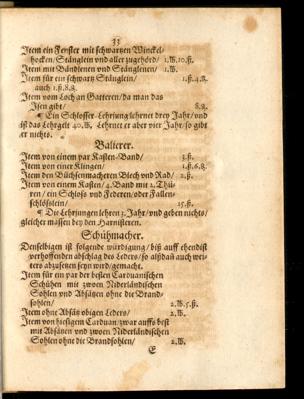 33
Item ein Fenster mit schwartzen Winckel-
hocken/ Stänglein vnd aller zugehörd/ 1.W.10.ß.
Item mit Bändlenen vnd Stänglenen/ 1.W.
Item für ein schwartz Stänglein/ 1.ß.4.g.
auch 1.ß.8.g.
Item vom Loch an Gatteren/ da man das
Isen gibt/ 8.g.
¶ Ein Schlosser-Lehrjung lehrnet drey Jahr/ vnd
ist das Lehrgelt 40.W. Lehrnet er aber vier Jahr/ so gibt
er nichts.
Balierer.
Item von einem par Kasten-Band/ 3.ß.
Item von einer Klingen/ 1.ß.6.g.
Item den Büchsenmacheren Blech vnd Rad/ 2.ß.
Item von einem Kasten/ 4.Band mit 2.Thü-
ren/ ein Schloß vnd Federen/ oder Fallen-
schlößlein/ 15.ß.
¶ Die Lehrjungen lehren 3.Jahr/ vnd geben nichts/
gleicher massen bey den Harnisteren.
Schühmacher.
Denselbigen ist folgende würdigung/ biß auff ehendist
verhoffenden abschlag des Leders/ so alsdañ auch wei-
ters abzusetzen seyn wird/ gemacht.
Item für ein par der besten Carduanischen
Schühen mit zwoen Niderländischen
Sohlen vnd Absätzen ohne die Brand-
sohlen/ 2.W.5.ß.
Item ohne Absätz obigen Leders/ 2.W.
Item von hiesigem Carduan/ zwar auffs best
mit Absätzen vnd zwoen Niderländischen
Sohlen ohne die Brandsohlen/ 2.W.
E